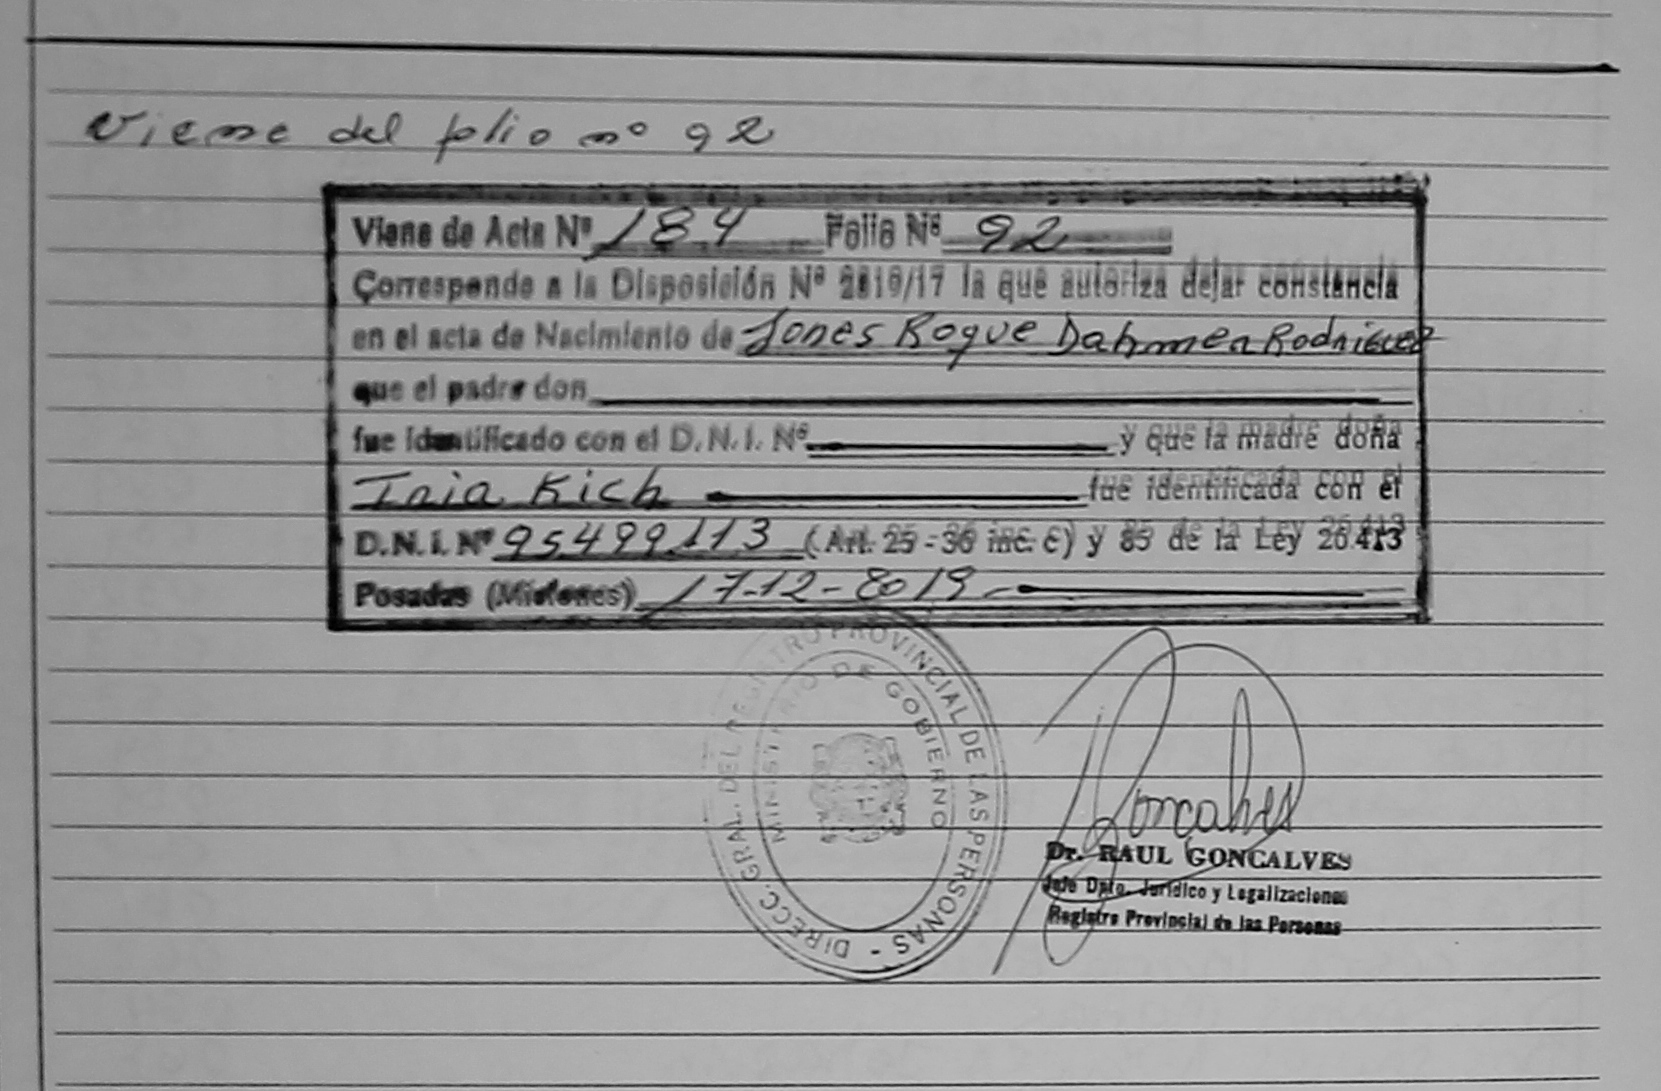 Viene del folio nº 92
Viene de Acta Nº 184 Folio Nº 92
Corresponde a la Disposición Nº 2819/17 la que autoriza dejar constancia
en el acta de Nacimiento de Jones Roque Dahmen Rodriguez
que el padre don
fue identificado con el D.N.I. Nº y que la madre doña
Kich fue identificada con el
D.N.I. Nº 95499113 (Art. 25-36 inc. C) y 85 de la Ley 26.413
Posadas (Misiones) 17-12-2019
DIRECC. GRAL. DEL REGISTRO PROVINCIAL DE LAS PERSONAS -
MINISTERIO DE GOBIERNO
Goncalves
Dr. RAUL GONCALVES
Jefe Dpto. Jurídico y Legalizaciones
Registro Provincial de las Personas